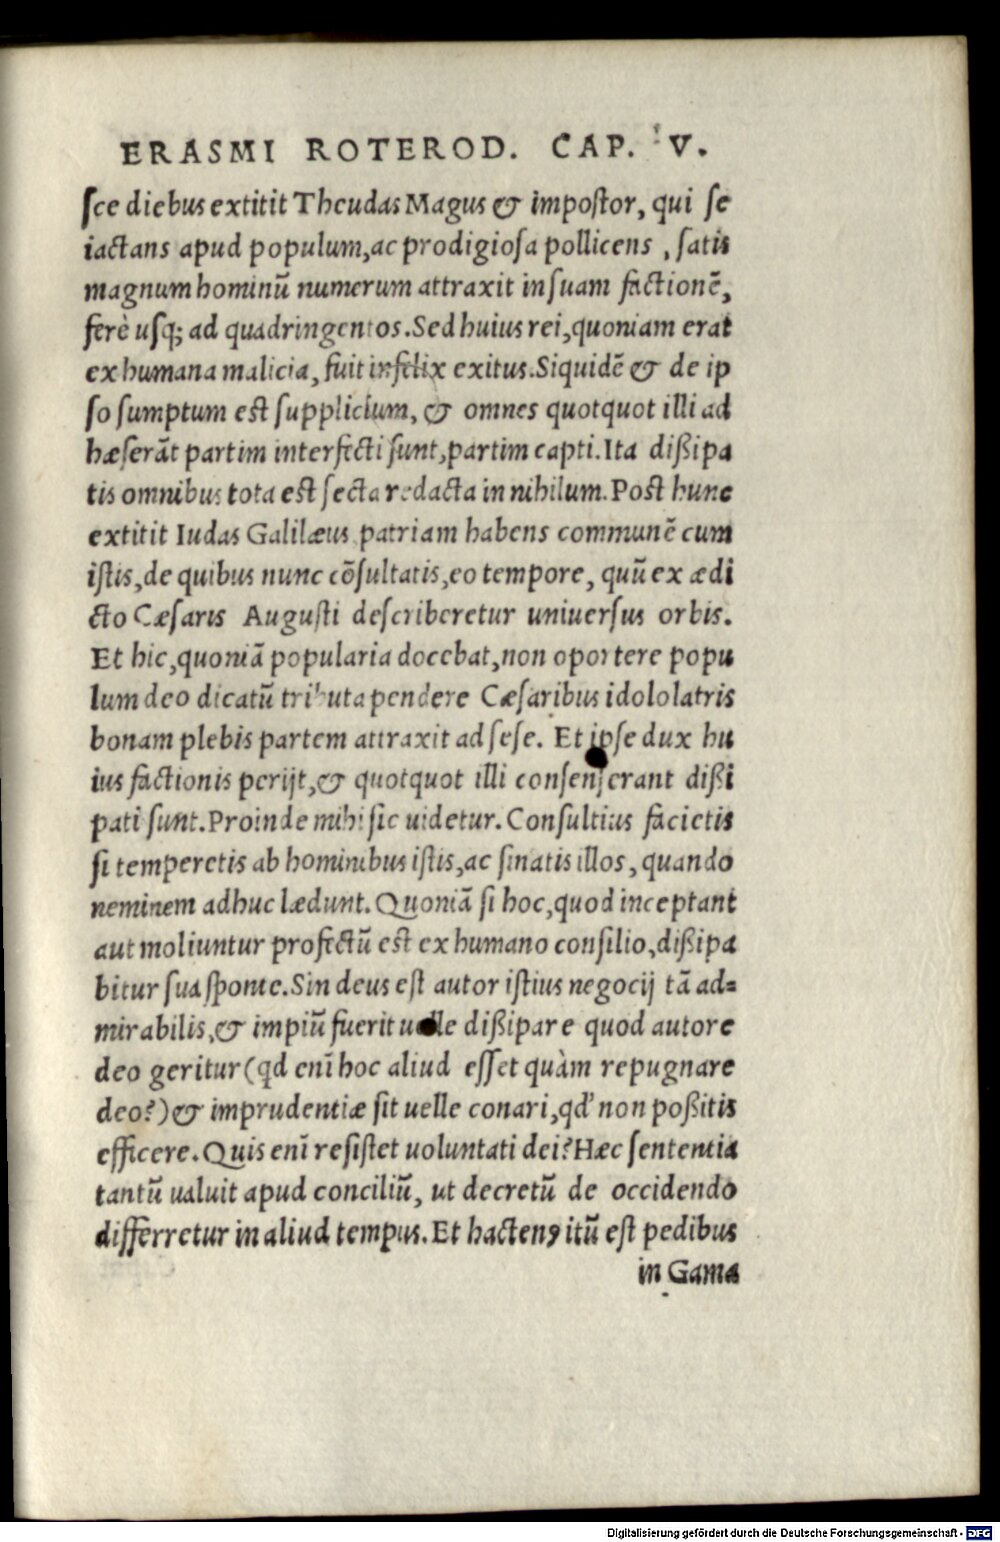 ERASMI ROTEROD. CAP. V.
sce diebus extitit Theudas Magus & impostor, qui se
iactans apud populum, ac prodigiosa pollicens, satis
magnum hominū numerum attraxit in suam factionē,
ferè usq; ad quadringentos. Sed huius rei, quoniam erat
ex humana malicia, fuit infelix exitus. Siquidē & de ip
so sumptum est supplicium, & omnes quotquot illi ad
hæserāt partim interfecti sunt, partim capti. Ita dißipa
tis omnibus tota est secta redacta in nihilum. Post hunc
extitit Iudas Galilæus patriam habens communē cum
istis, de quibus nunc cōsultatis, eo tempore, quū ex ædi
cto Cæsaris Augusti describeretur uniuersus orbis.
Et hic, quoniā popularia docebat, non oportere popu
lum deo dicatū tributa pendere Cæsaribus idololatris
bonam plebis partem attraxit ad sese. Et ipse dux hu
ius factionis perijt, & quotquot illi consenserant dißi
pati sunt. Proinde mihi sic uidetur. Consultius facietis
si temperetis ab hominibus istis, ac sinatis illos, quando
neminem adhuc lædunt. Quoniā si hoc, quod inceptant
aut moliuntur profectū est ex humano consilio, dißipa
bitur sua sponte. Sin deus est autor istius negocij tā ad=
mirabilis, & impiū fuerit uelle dißipare quod autore
deo geritur (qd enī hoc aliud esset quàm repugnare
deo?) & imprudentiæ sit uelle conari, qd' non poßitis
efficere. Quis enī resistet uoluntati dei? Hæc sententia
tantū ualuit apud conciliū, ut decretū de occidendo
differretur in aliud tempus. Et hactenꝰ itū est pedibus
in Gama
Digitalisierung gefördert durch die Deutsche Forschungsgemeinschaft - DFG